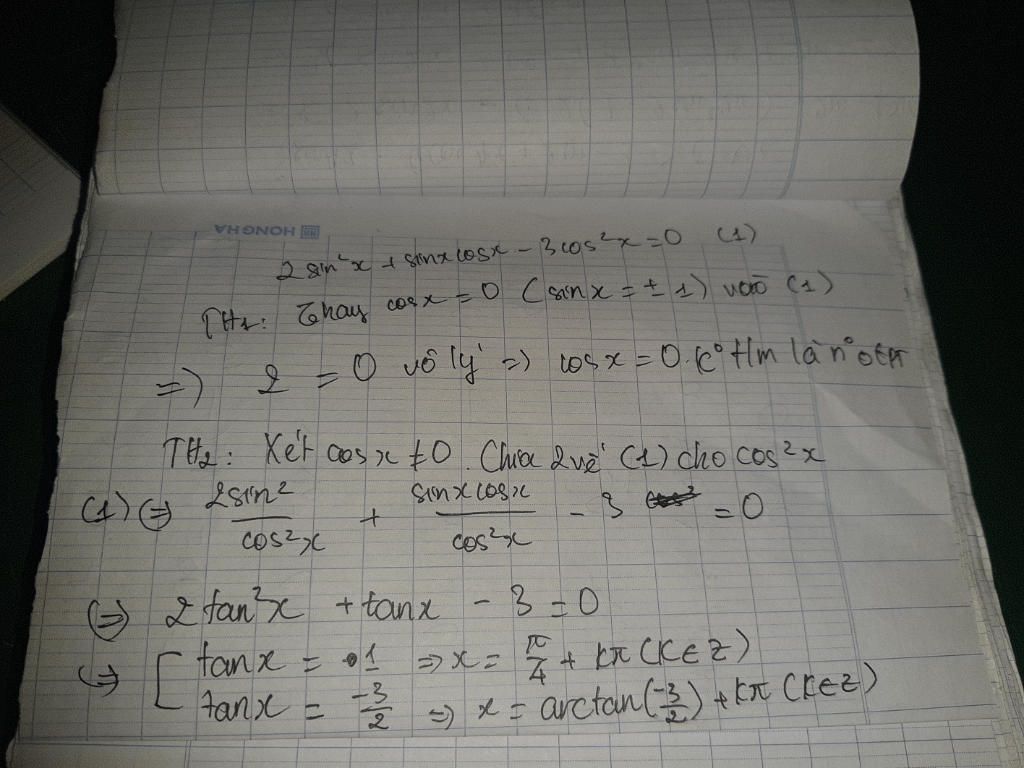 HONGHA
2 sin²x + sinxcosx - 3cos²x = 0 (1)
TH1: Thay cosx = 0 (sinx = ± 1) vào (1)
=) 2 = 0 vô lý =) cosx = 0 k° t/m là n°
TH2: Xét cosx ≠ 0. Chia 2 vế (1) cho cos²x
(1) (=) 2sin²/cos²x + sinxcosx/cos²x - 3 = 0
(=) 2tan²x + tanx - 3 = 0
[ tanx = 1 => x = π/4 + kπ (K∈Z)
tanx = -3/2 => x = arctan(-3/2) + kπ (K∈Z)